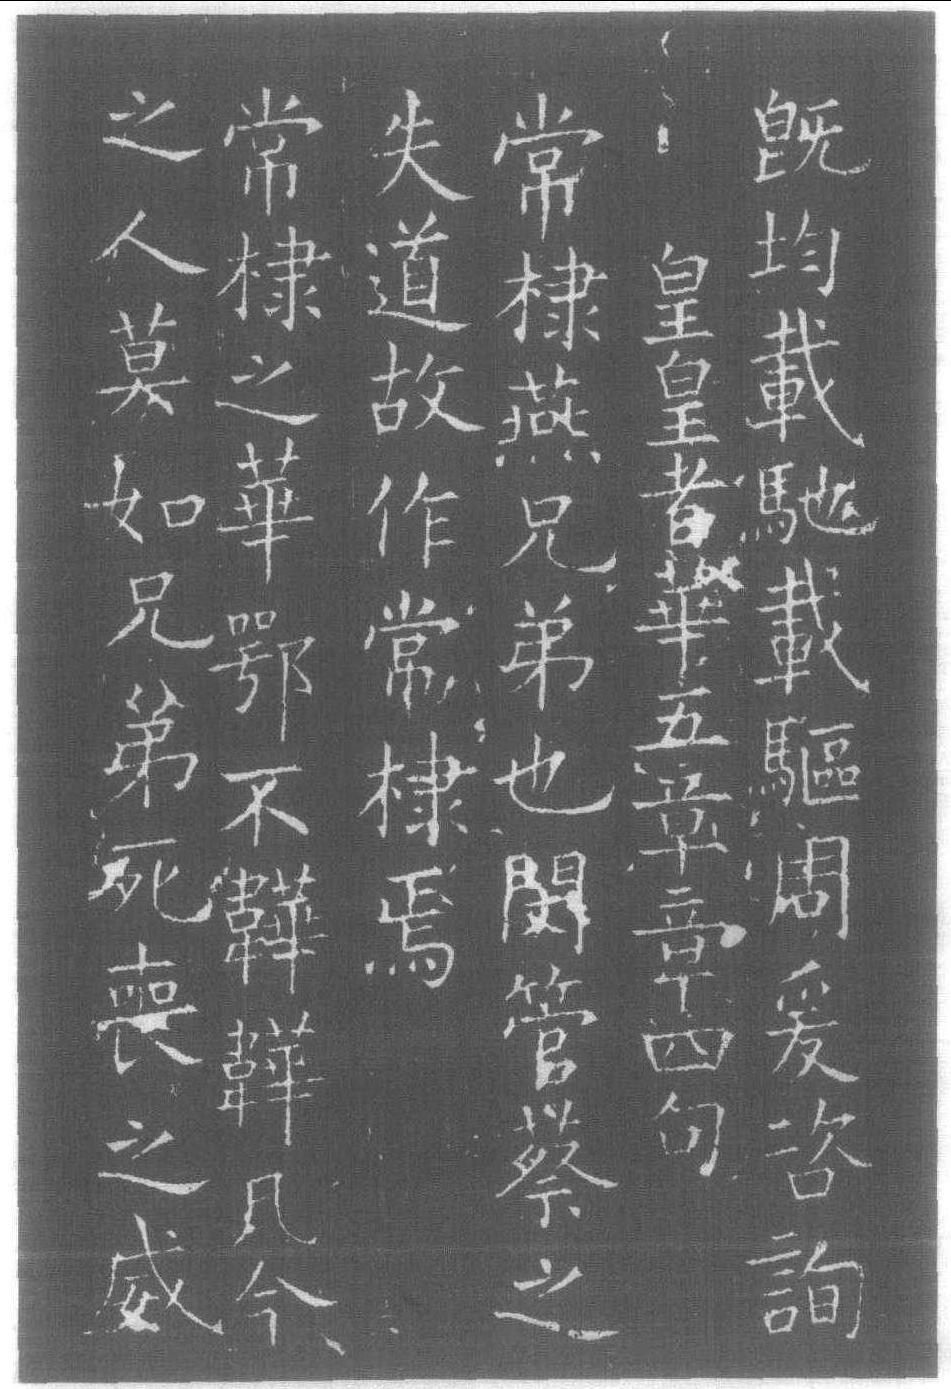 既均載馳載驅周爰咨詢
皇皇者華五章章四句
常棣燕兄弟也閔管蔡之
失道故作常棣焉
常棣之華鄂不韡韡凡今
之人莫如兄弟死喪之威